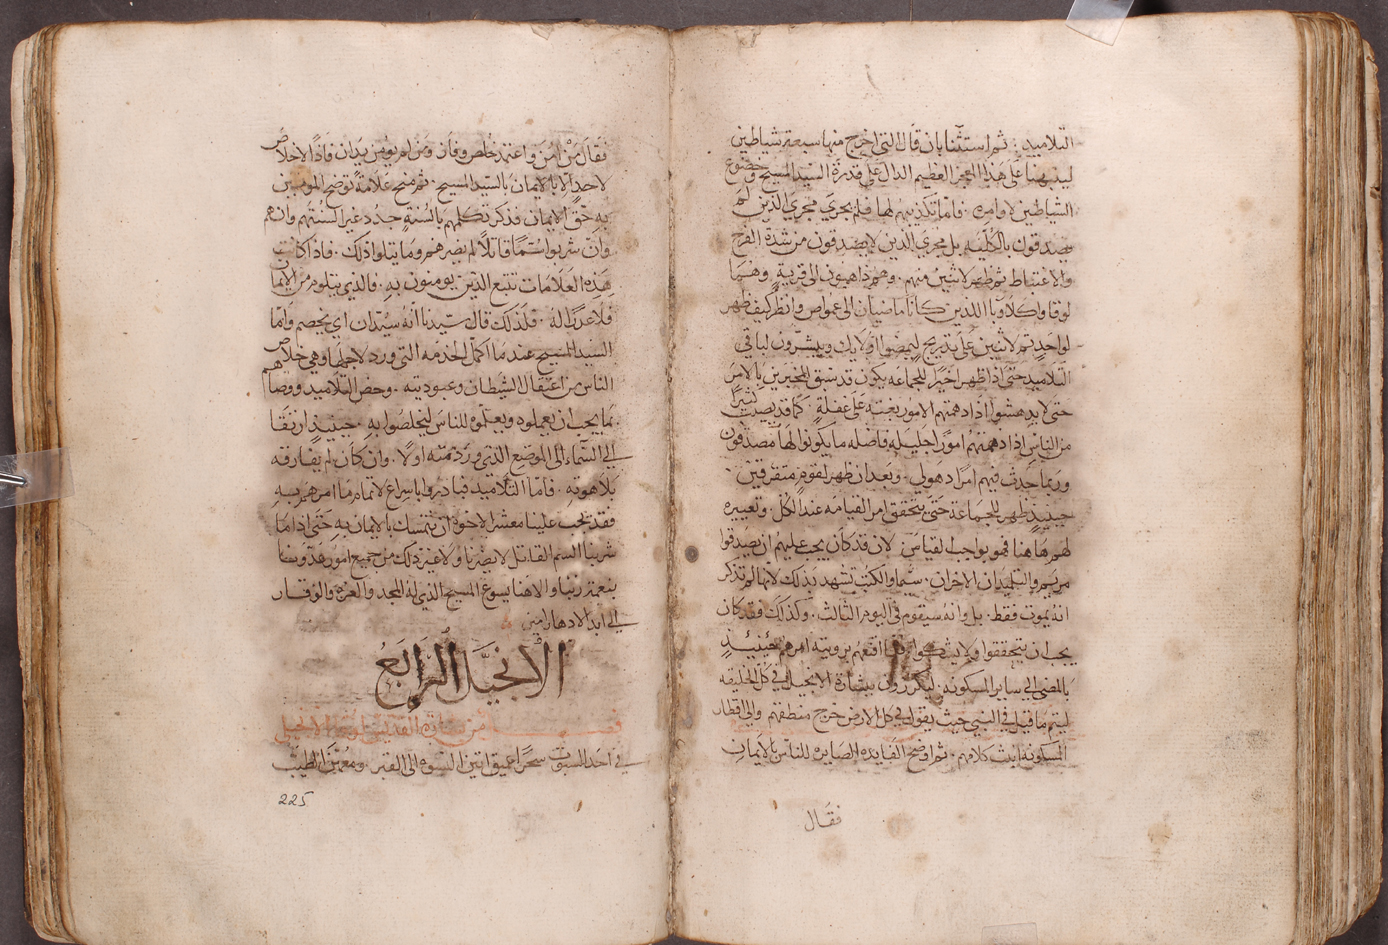 التلاميد. ثم استثنا بان قال التي اخرج منها سبعة شياطين
لينبهنا على هذا المعجز العظيم الدال على قدرة السيد المسيح وخضوع
الشياطين لاوامره. فاما تكذيبهم لها فلم يجري مجري الذين لم
يصدقون بالكليه بل مجري الذين لا يصدقون من شدة الفرح
والاغتباط ثم ظهر لاثنين منهم. وهم ذاهبون الى قرية. وهما
لوقا واكلاوبا اللذين كانا ماضيان الى عمواص وانظر كيف ظهر
لواحد ثم لاثنين على تدريج ليمضوا اولايك ويبشرون لباقي
التلاميد حتى اذا ظهر اخيرا للجماعه يكون قد سبق المخبرين بالامر
حتى لا يدهشوا اذا دهمتهم الامور بغتة على غفلة. كما قد يصيب كثيرا
من الناس اذا دهمتهم امورا جليله فاضله ما يكونوا لها مصدقون
وربما حدث فيهم امرا دهولي. وبعد ان ظهر لقوم متفرقين
حينيد ظهر للجماعة حتى يتحقق امر القيامه عند الكل. وتعييره
لهم هاهنا فهو بواجب القياس. لان قد كان يجب عليهم ان يصدقوا
مريم والتلميدان الاخران. سيما والكتب تشهد بذلك لانها لم تذكر
انه يموت فقط. بل وانه سيقوم في اليوم الثالث. وكذلك فقد كان
يجب ان يتحققوا ولا يشكوا اقنعهم برويته امرهم حينيد
بالمضي الى ساير المسكونه. ليكرزون ببشارة الانجيل في كل الخليقه
ليتم ما قيل في النبي حيث يقول في كل الارض خرج منطقهم والى اقطار
المسكونه انبث كلامهم. ثم اوضح الفايده الصايره للناس بالايمان
فقال
فقال من امن واعتمد خلص وفاز ومن لم يومن يدان فاذا لا خلاص
لاحد الا بالايمان بالسيد المسيح. ثم منح علامة توضح المومنين
به حق الايمان فذكر تكلمهم بالسنة جدد غير السنتهم وانهم
وان شربوا سما قاتلا لم يضرهم وما يتلوا ذلك. فاذا كانت
هذه العلامات تتبع الذين يومنون به. والذي يتلوم من الايمان
فلا عذرا له. فلذلك قال سيدنا انه سيدان اي يخصم واما
السيد المسيح عندما اكمل الخدمه التي ورد لاجلها وهي خلاص
الناس من اعتقال الشيطان وعبوديته. وحض التلاميد ووصاهم
بما يجب ان يعملوه ويعلموه للناس ليخلصوا به. حينيذ ارتفا
الى السماء الى الموضع الذي ورد منه اولا. وان كان لم يفارقه
بلاهوته. فاما التلاميد فبادروا باسراع لاتمام ما امرهم به
فقد يجب علينا معشر الاخوة ان نتمسك بالايمان به حتى اذا ما
شربنا السم القاتل لا يضرنا ولا غير ذلك من جميع امور عدونا
بنعمة ربنا والاهنا يسوع المسيح الذي له المجد والعزه والوقار
الى ابد الادهار امين
الانجيل الرابع
فصــل من بشارة القديس لوقا الانجيلي
في احد السبوت سحرا عميقا اتين النسوه الى القبر. ومعهن الطيب
225